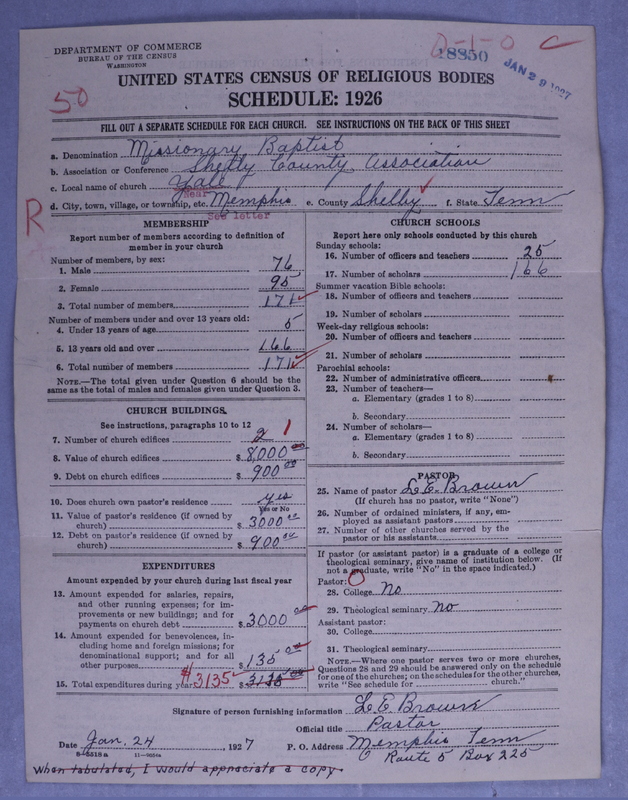 DEPARTMENT OF COMMERCE
BUREAU OF THE CENSUS
WASHINGTON
18850
JAN 29 1927
50
UNITED STATES CENSUS OF RELIGIOUS BODIES
SCHEDULE: 1926
FILL OUT A SEPARATE SCHEDULE FOR EACH CHURCH. SEE INSTRUCTIONS ON THE BACK OF THIS SHEET
a. Denomination Missionary Baptist
b. Association or Conference Shelby County Association
c. Local name of church Yale
near
d. City, town, village, or township, etc. Memphis e. County Shelby f. State Tenn
See letter
R
MEMBERSHIP
Report number of members according to definition of
member in your church
Number of members, by sex:
1. Male 76
2. Female 95
3. Total number of members 171
Number of members under and over 13 years old:
4. Under 13 years of age 5
5. 13 years old and over 166
6. Total number of members 171
NOTE.—The total given under Question 6 should be the
same as the total of males and females given under Question 3.
CHURCH BUILDINGS
See instructions, paragraphs 10 to 12
7. Number of church edifices 2 1
8. Value of church edifices $ 8,000 00
9. Debt on church edifices 900 00
10. Does church own pastor's residence yes
Yes or No
11. Value of pastor's residence (if owned by
church) $ 3000 00
12. Debt on pastor's residence (if owned by
church) $ 900 00
EXPENDITURES
Amount expended by your church during last fiscal year
13. Amount expended for salaries, repairs,
and other running expenses; for im-
provements or new buildings; and for
payments on church debt $ 3000 00
14. Amount expended for benevolences, in-
cluding home and foreign missions; for
denominational support; and for all
other purposes $ 135 00
15. Total expenditures during year $3135 $ 3135 00
CHURCH SCHOOLS
Report here only schools conducted by this church
Sunday schools:
16. Number of officers and teachers 25
17. Number of scholars 166
Summer vacation Bible schools:
18. Number of officers and teachers
19. Number of scholars
Week-day religious schools:
20. Number of officers and teachers
21. Number of scholars
Parochial schools:
22. Number of administrative officers
23. Number of teachers—
a. Elementary (grades 1 to 8)
b. Secondary
24. Number of scholars—
a. Elementary (grades 1 to 8)
b. Secondary
PASTOR
25. Name of pastor L. E. Brown
(If church has no pastor, write "None")
26. Number of ordained ministers, if any, em-
ployed as assistant pastors
27. Number of other churches served by the
pastor or his assistants
If pastor (or assistant pastor) is a graduate of a college or
theological seminary, give name of institution below. (If
not a graduate, write "No" in the space indicated.)
Pastor:
28. College No
29. Theological seminary No
Assistant pastor:
30. College
31. Theological seminary
NOTE.—Where one pastor serves two or more churches,
Questions 28 and 29 should be answered only on the schedule
for one of the churches; on the schedules for the other churches,
write "See schedule for church."
Signature of person furnishing information L. E. Brown
Official title Pastor
Date Jan. 24, 1927 P. O. Address Memphis Tenn
Route 5 Box 225
8-5518a
When tabulated, I would appreciate a copy.